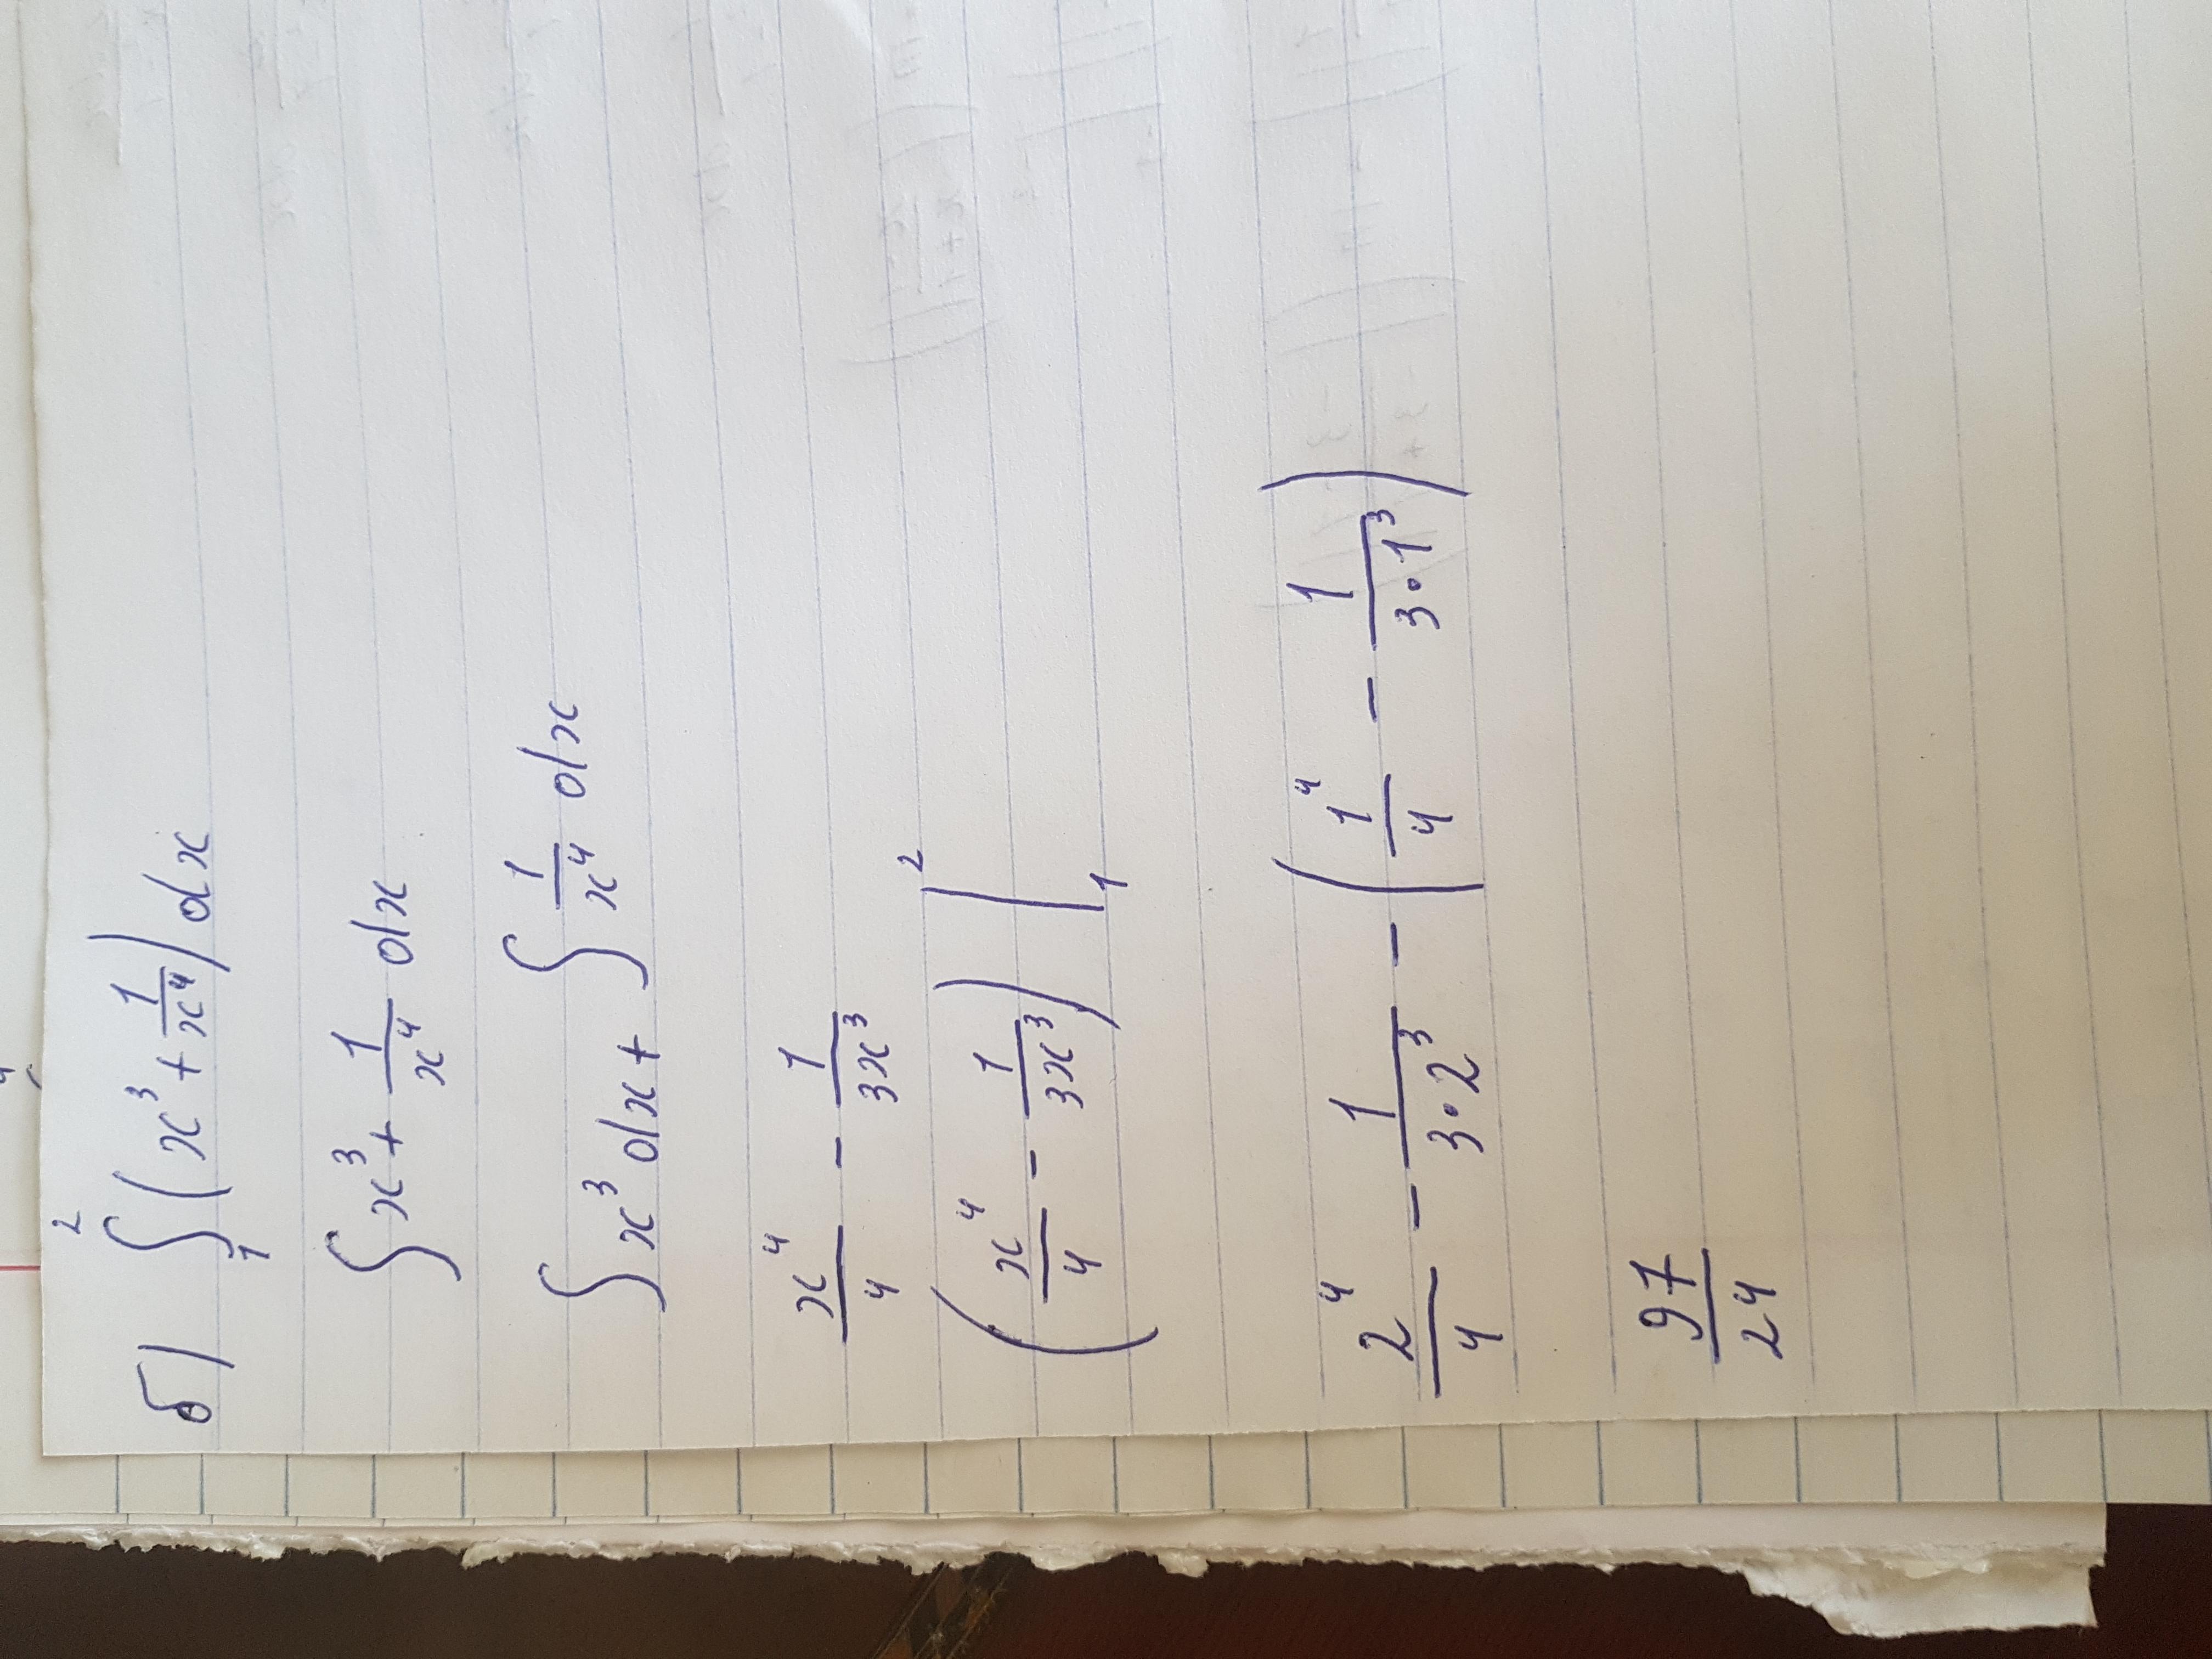 б) ∫₁² (x³ + 1/x⁴) dx
∫ x³ + 1/x⁴ dx
∫ x³ dx + ∫ 1/x⁴ dx
x⁴/4 - 1/3x³
(x⁴/4 - 1/3x³) |₁²
2⁴/4 - 1/3·2³ - (1⁴/4 - 1/3·1³)
97/24